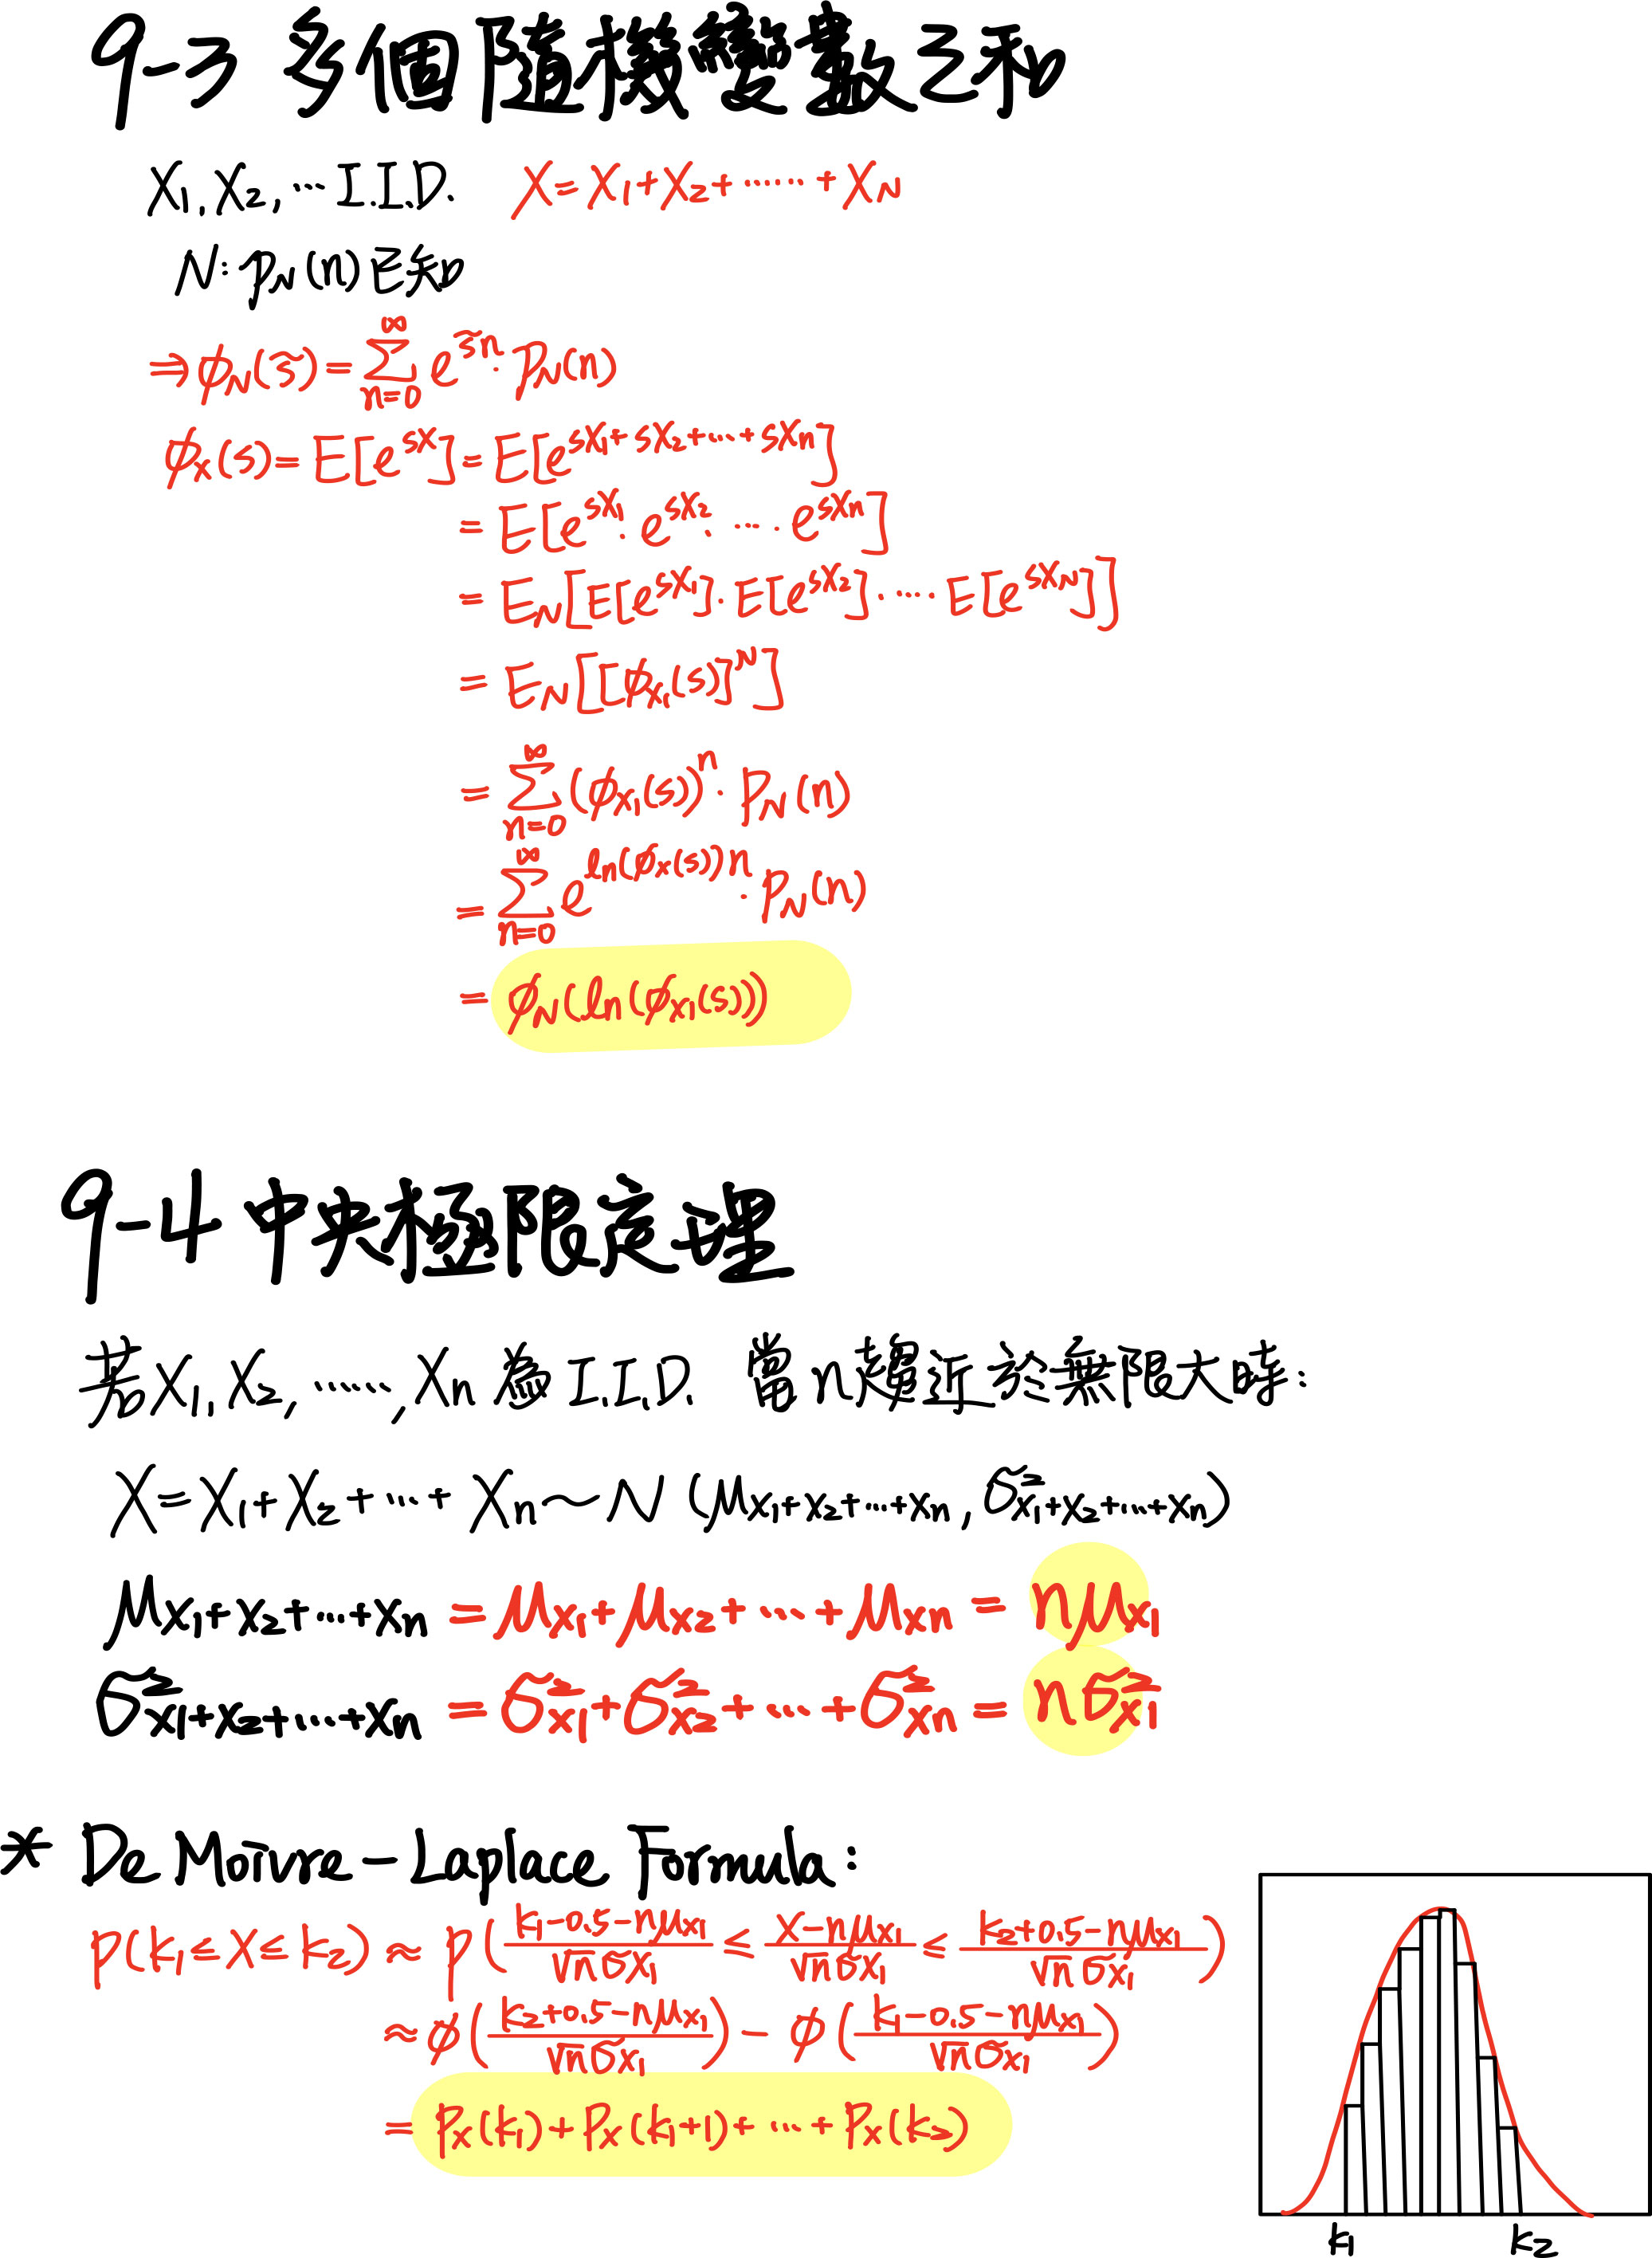 9-3 多個隨機變數之和
X₁, X₂, … I.I.D.  X = X₁ + X₂ + …… + X_N
N: p_N(n) 已知
⇒ ϕ_N(s̃) = Σ_{n=0}^{∞} e^{s̃n} · p_N(n)
ϕ_X(s) = E[e^{sX}] = E[e^{sX₁+sX₂+…+sX_n}]
= E[e^{sX₁} · e^{sX₂} · … · e^{sX_n}]
= E_N[E[e^{sX₁}] · E[e^{sX₂}] · … · E[e^{sX_N}]]
= E_N[[ϕ_{X₁}(s)]^N]
= Σ_{n=0}^{∞} (ϕ_{X₁}(s))^n · P_N(n)
= Σ_{n=0}^{∞} e^{ln(ϕ_X(s))n} · P_N(n)
= ϕ_N(ln(ϕ_{X₁}(s)))
9-4 中央極限定理
若 X₁, X₂, ……, X_n 為 I.I.D. 當 n 趨近於無限大時:
X = X₁ + X₂ + … + X_n ~ N (μ_{X₁+X₂+…+X_n}, σ²_{X₁+X₂+…+X_n})
μ_{X₁+X₂+…+X_n} = μ_{X₁} + μ_{X₂} + … + μ_{X_n} = nμ_{X₁}
σ²_{X₁+X₂+…+X_n} = σ²_{X₁} + σ²_{X₂} + … + σ²_{X_n} = nσ²_{X₁}
* De Moivre-Laplace Formula:
P(k₁ ≤ X ≤ k₂) ≈ P((k₁-0.5-nμ_{X₁})/(√n σ_{X₁}) ≤ (X-nμ_{X₁})/(√n σ_{X₁}) ≤ (k₂+0.5-nμ_{X₁})/(√n σ_{X₁}))
≈ ϕ((k₂+0.5-nμ_{X₁})/(√n σ_{X₁})) - ϕ((k₁-0.5-nμ_{X₁})/(√n σ_{X₁}))
= P_X(k₁) + P_X(k₁+1) + … + P_X(k₂)
k₁ k₂